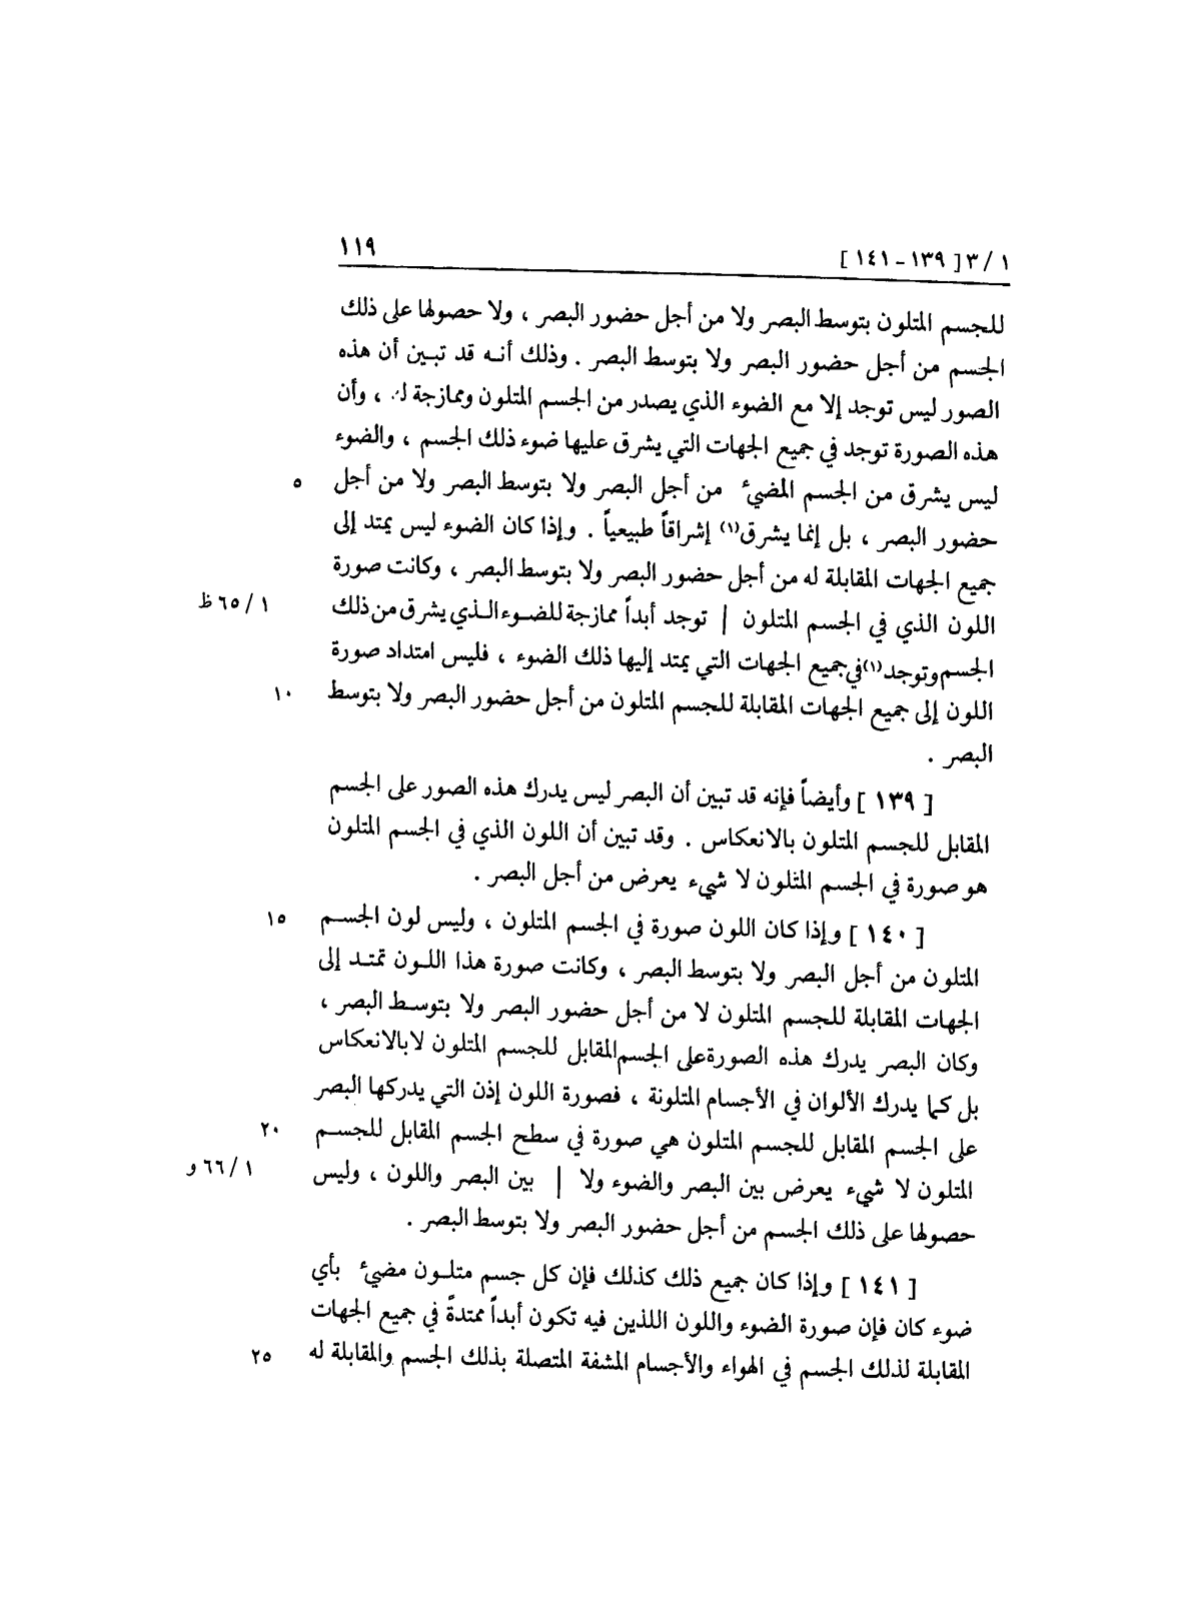 ١ / ٣ [ ١٣٩ – ١٤١ ] ١١٩
للجسم المتلون بتوسط البصر ولا من أجل حضور البصر ، ولا حصولها على ذلك
الجسم من أجل حضور البصر ولا بتوسط البصر . وذلك أنه قد تبين أن هذه
الصور ليس توجد إلا مع الضوء الذي يصدر من الجسم المتلون وممازجة ، وأن
هذه الصورة توجد في جميع الجهات التي يشرق عليها ضوء ذلك الجسم ، والضوء
ليس يشرق من الجسم المضيء من أجل البصر ولا بتوسط البصر ولا من أجل ٥
حضور البصر ، بل إنما يشرق(١) إشراقاً طبيعياً . وإذا كان الضوء ليس يمتد إلى
جميع الجهات المقابلة له من أجل حضور البصر ولا بتوسط البصر ، وكانت صورة
اللون الذي في الجسم المتلون | توجد أبداً ممازجة للضوء الذي يشرق من ذلك ١ / ٦٥ ظ
الجسم وتوجد(١) في جميع الجهات التي يمتد إليها ذلك الضوء ، فليس امتداد صورة
اللون إلى جميع الجهات المقابلة للجسم المتلون من أجل حضور البصر ولا بتوسط ١٠
البصر .
[ ١٣٩ ] وأيضاً فإنه قد تبين أن البصر ليس يدرك هذه الصور على الجسم
المقابل للجسم المتلون بالانعكاس . وقد تبين أن اللون الذي في الجسم المتلون
هو صورة في الجسم المتلون لا شيء يعرض من أجل البصر .
[ ١٤٠ ] وإذا كان اللون صورة في الجسم المتلون ، وليس لون الجسم ١٥
المتلون من أجل البصر ولا بتوسط البصر ، وكانت صورة هذا اللون تمتد إلى
الجهات المقابلة للجسم المتلون لا من أجل حضور البصر ولا بتوسط البصر ،
وكان البصر يدرك هذه الصورة على الجسم المقابل للجسم المتلون لا بالانعكاس
بل كما يدرك الألوان في الأجسام المتلونة ، فصورة اللون إذن التي يدركها البصر
على الجسم المقابل للجسم المتلون هي صورة في سطح الجسم المقابل للجسم ٢٠
المتلون لا شيء يعرض بين البصر والضوء ولا | بين البصر واللون ، وليس ١ / ٦٦ و
حصولها على ذلك الجسم من أجل حضور البصر ولا بتوسط البصر .
[ ١٤١ ] وإذا كان جميع ذلك كذلك فإن كل جسم متلون مضيء بأي
ضوء كان فإن صورة الضوء واللون اللذين فيه تكون أبداً ممتدةً في جميع الجهات
المقابلة لذلك الجسم في الهواء والأجسام المشفة المتصلة بذلك الجسم والمقابلة له ٢٥